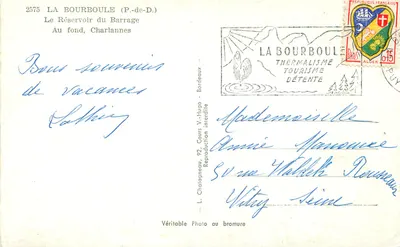 2575 LA BOURBOULE (P.-de-D.)
Le Réservoir du Barrage
Au fond, Charlannes
Bons souvenirs
de vacances
LA BOURBOULE
THERMALISME
TOURISME
DÉTENTE
L. Chataigneau, 97, Cours V.-Hugo - Bordeaux
Reproduction interdite
Mademoiselle
Annie
50 rue Waldeck Rousseau
Vitry Seine
Véritable Photo au bromure